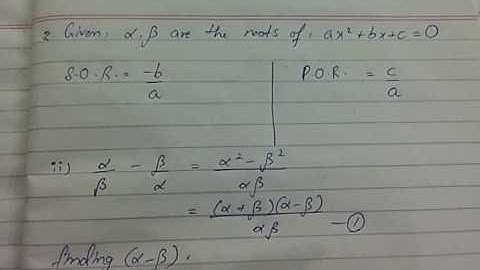 2. Given: α, β are the roots of: ax² + bx + c = 0
S.O.R. = -b/a
P.O.R. = c/a
ii) α/β - β/α = (α² - β²)/αβ
= (α + β)(α - β)/αβ —①
finding (α - β).